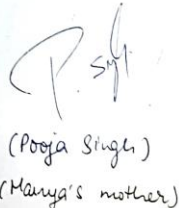 P. Singh
(Pooja Singh)
(Manya's mother)